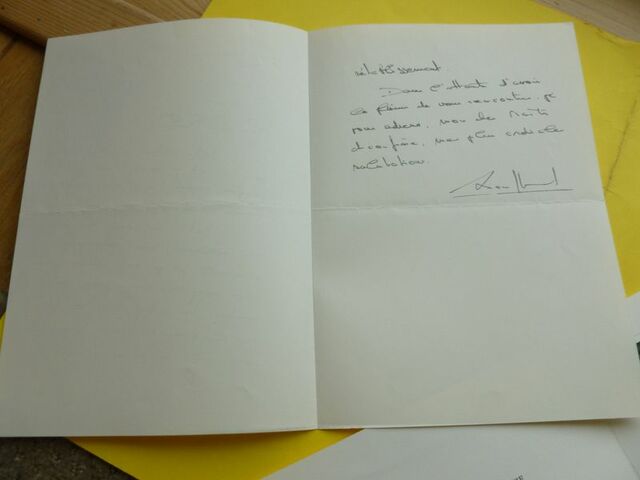 rétablissement.
Dans l'attente d'avoir
le plaisir de vous rencontrer, je
vous adresse, mon
et confrère, mes plus cordiales
salutations.